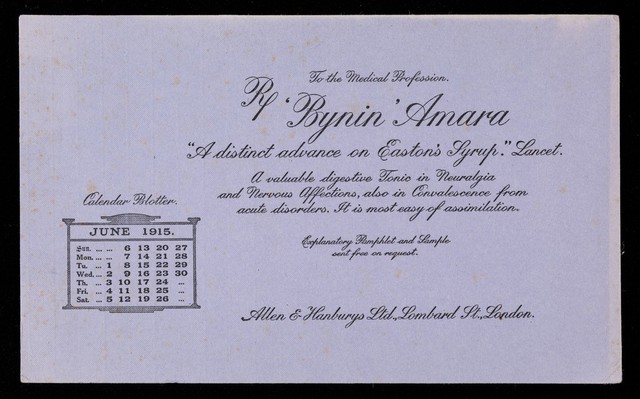 To the Medical Profession.
℞ 'Bynin' Amara
"A distinct advance on Easton's Syrup." Lancet.
A valuable digestive Tonic in Neuralgia
and Nervous Affections, also in Convalescence from
acute disorders. It is most easy of assimilation.
Explanatory Pamphlet and Sample
sent free on request.
Allen & Hanburys Ltd., Lombard St., London.
Calendar Blotter.
JUNE 1915.
Sun. ... ... 6 13 20 27
Mon. ... ... 7 14 21 28
Tu. ... 1 8 15 22 29
Wed. ... 2 9 16 23 30
Th. ... 3 10 17 24 ...
Fri. ... 4 11 18 25 ...
Sat. ... 5 12 19 26 ...